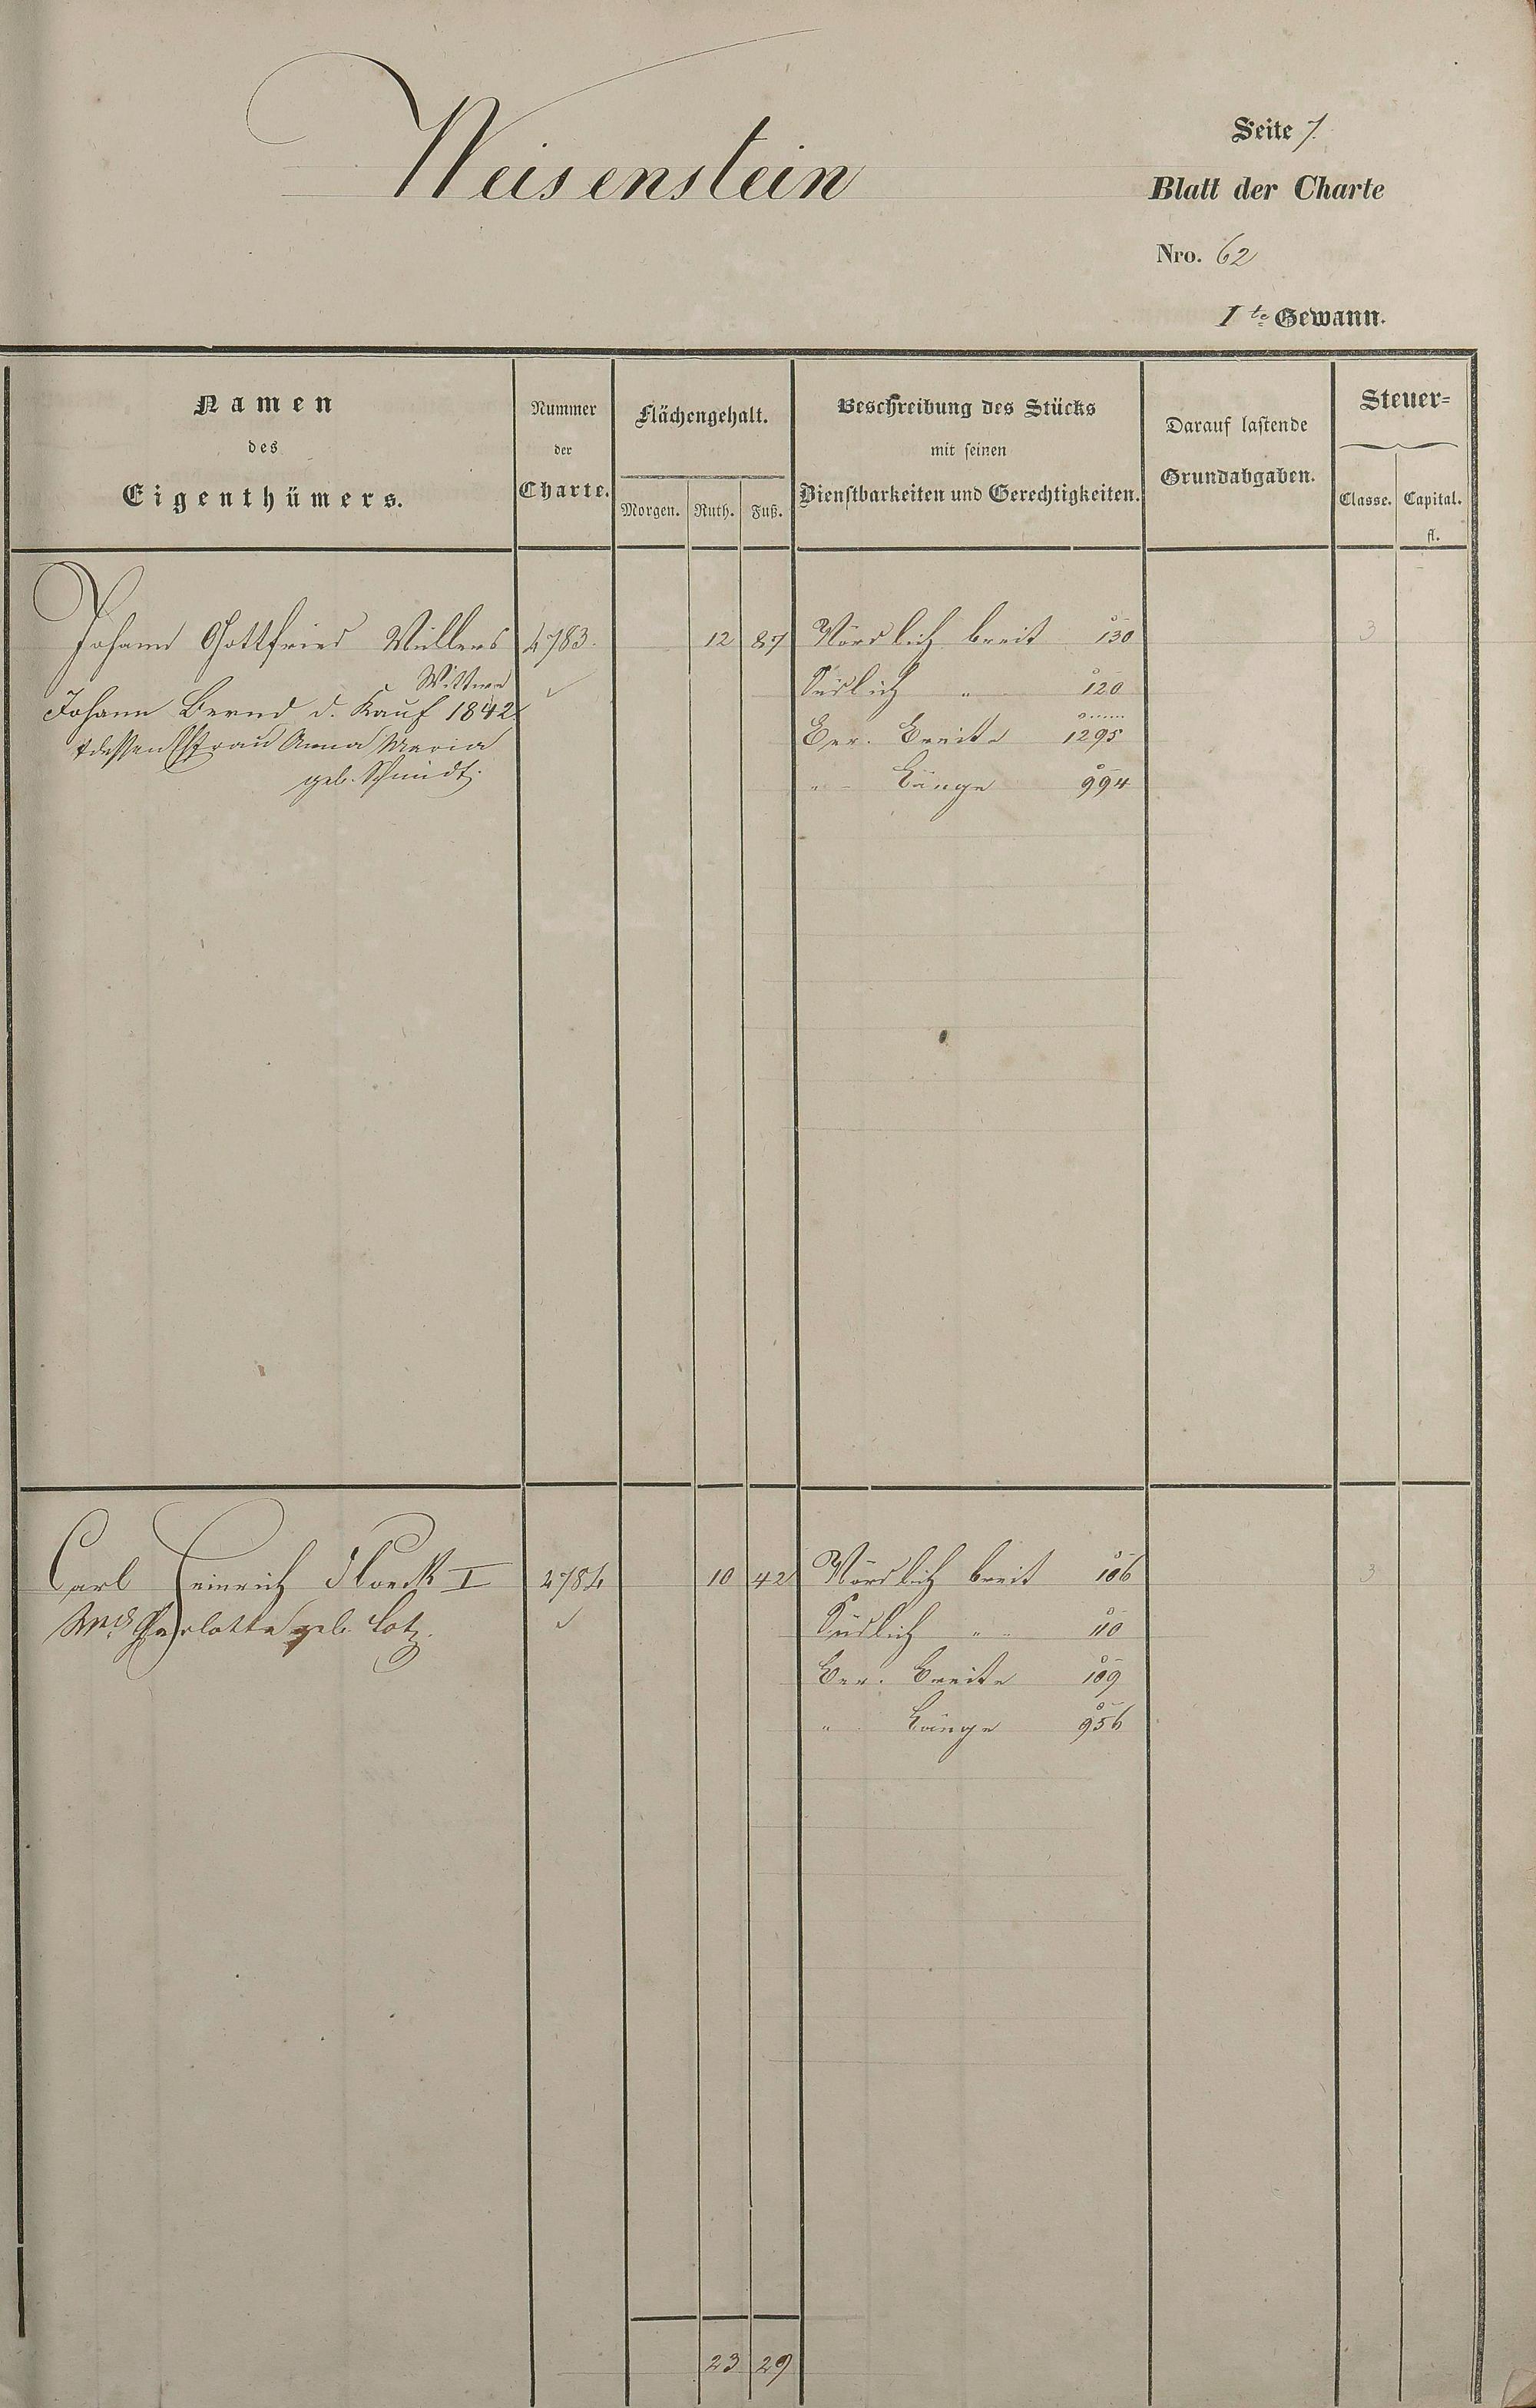 Weisenstein
Seite 7.
Blatt der Charte
Nro. 62
I te Gewann.
Namen
des
Eigenthümers.
Nummer
der
Charte.
Flächengehalt.
Morgen. Ruth. Fuß.
Beschreibung des Stücks
mit seinen
Dienstbarkeiten und Gerechtigkeiten.
Darauf lastende
Grundabgaben.
Steuer=
Classe. Capital.
fl.
Johann Gottfried Müllers 4783. 12 87 Nördlich breit 130 3
Wittwe
Südlich " 120
Johann Bernd d. Kauf 1842.
Ber. Breite 1295
dessen Ehfrau Anna Maria
geb. Schmidt.
" Länge 994
Carl Heinrich Floeck I 4784 10 42 Nördlich breit 106 3
Charlotte geb. Lotz. Südlich " 110
Ber. Breite 109
" Länge 956
23 29